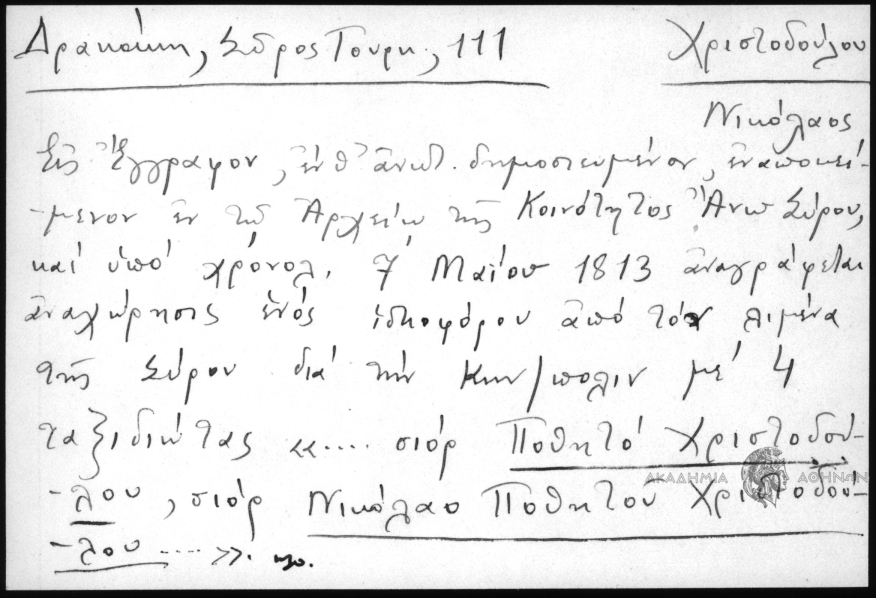 Δρακάκη, Σῦρος Τουρκ., 111
Χριστοδούλου
Νικόλαος
Εἰς ἔγγραφον, ἐνθ' ἀνωτ. δημοσιευμένον, ἐναποκεί-
-μενον ἐν τῷ Ἀρχείῳ τῆς Κοινότητος Ἄνω Σύρου,
καί ὑπό χρόνολ. 7 Μαΐου 1813 ἀναγράφεται
ἀναχώρησις ἑνός ἱστιοφόρου ἀπό τόν λιμένα
τῆς Σύρου διά τήν Κων/πολιν μέ 4
ταξιδιώτας «.... σιόρ Ποθητό Χριστοδού-
-λου, σιόρ Νικόλαο Ποθητού Χριστοδού-
-λου ....». κλπ.
ΑΚΑΔΗΜΙΑ ΑΘΗΝΩΝ